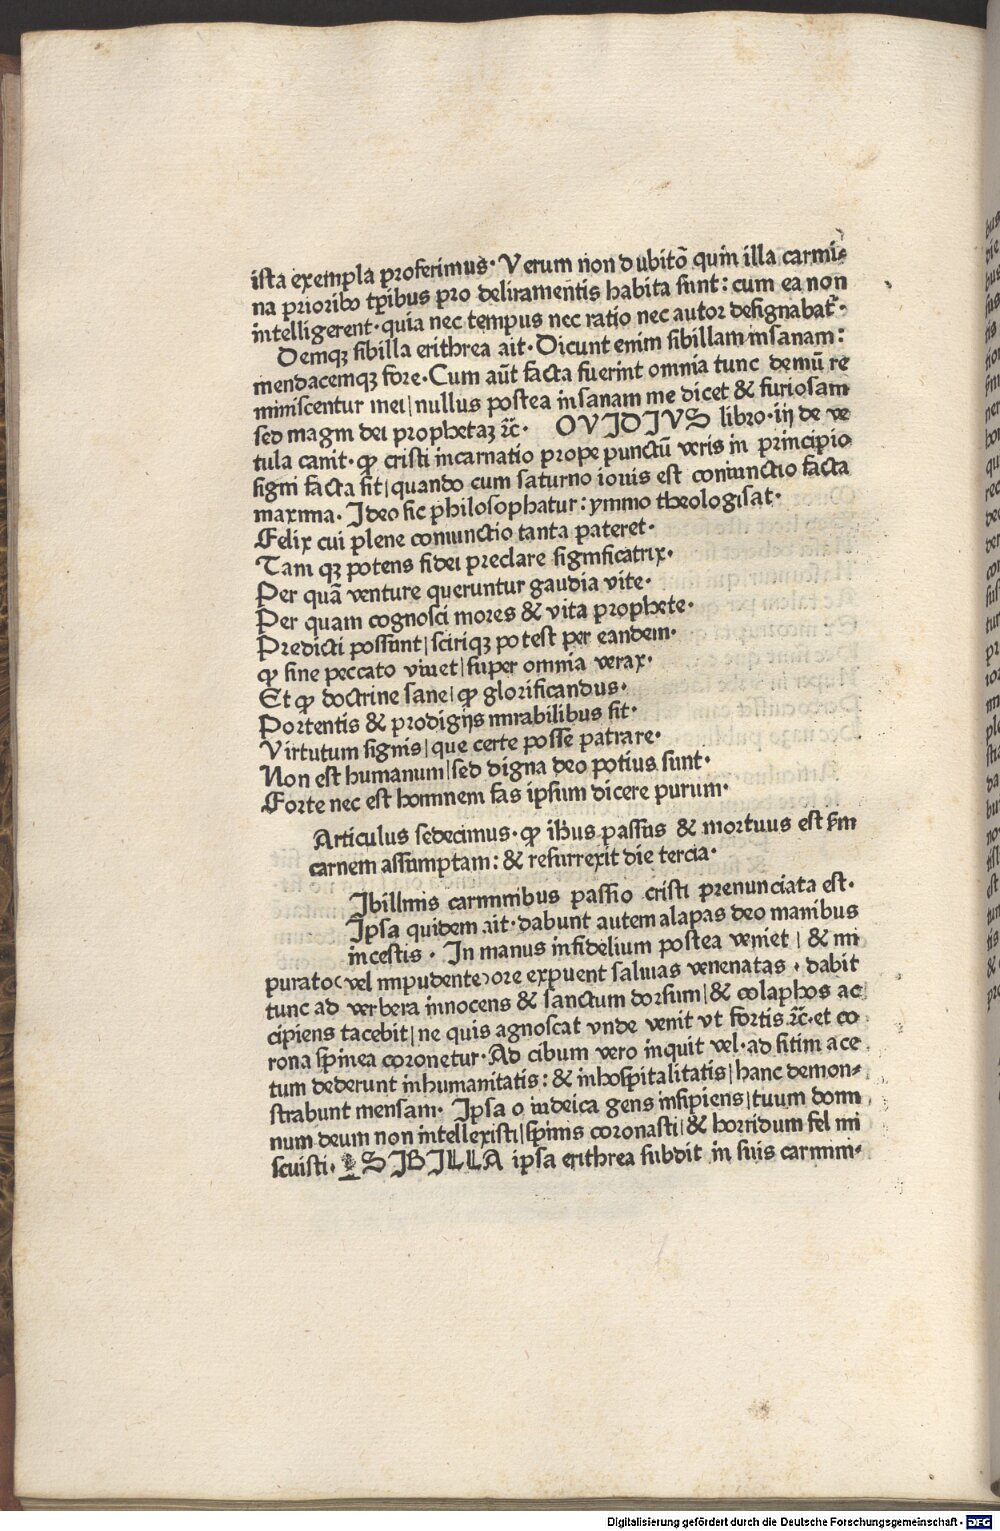 ista exempla proferimus· Verum non dubitō quin illa carmi-
na prioribꝯ tꝑibus pro deliramentis habita sunt: cum ea non
intelligerent· quia nec tempus nec ratio nec autor designabat᷑·
Demqꝫ sibilla erithrea ait· Dicunt enim sibillam insanam:
mendacemqꝫ fore· Cum aūt facta fuerint omnia tunc demū re
miniscentur mei| nullus postea insanam me dicet & furiosam
sed magni dei prophetaꝫ ꝛ̄c· OVIDIVS libro·iij de ve
tula canit· ꝙ cristi incarnatio prope punctū veris in principio
signi facta sit| quando cum saturno iouis est coniunctio facta
maxima· Ideo sic philosophatur: ymmo theologisat·
Felix cui plene coniunctio tanta pateret·
Tam qꝫ potens fidei preclare significatrix·
Per quā venture queruntur gaudia vite·
Per quam cognosci mores & vita prophete·
Predicti possunt| sciriqꝫ potest per eandem·
ꝙ sine peccato viuet| super omnia verax·
Et ꝙ doctrine sane| ꝙ glorificandus·
Portentis & prodigijs mirabilibus sit·
Virtutum signis| que certe posse patrare·
Non est humanum| sed digna deo potius sunt·
Forte nec est hominem fas ipsum dicere purum·
Articulus sedecimus· ꝙ ihus passus & mortuus est s̄m
carnem assumptam: & resurrexit die tercia·
Ibillinis carminibus passio cristi prenunciata est·
Ipsa quidem ait· dabunt autem alapas deo manibus
incestis· In manus infidelium postea veniet | & im
purato (vel impudente) ore expuent saliuas venenatas · dabit
tunc ad verbera innocens & sanctum dorsum| & colaphos ac
cipiens tacebit| ne quis agnoscat vnde venit vt fortis ꝛ̄c· et co
rona spinea coronetur· Ad cibum vero inquit vel· ad sitim ace
tum dederunt inhumanitatis: & inhospitalitatis| hanc demon-
strabunt mensam· Ipsa o iudeica gens insipiens| tuum domi
num deum non intellexisti| spinis coronasti| & horridum fel mi
scuisti· SIBILLA ipsa erithrea subdit in suis carmini-
Digitalisierung gefördert durch die Deutsche Forschungsgemeinschaft - DFG